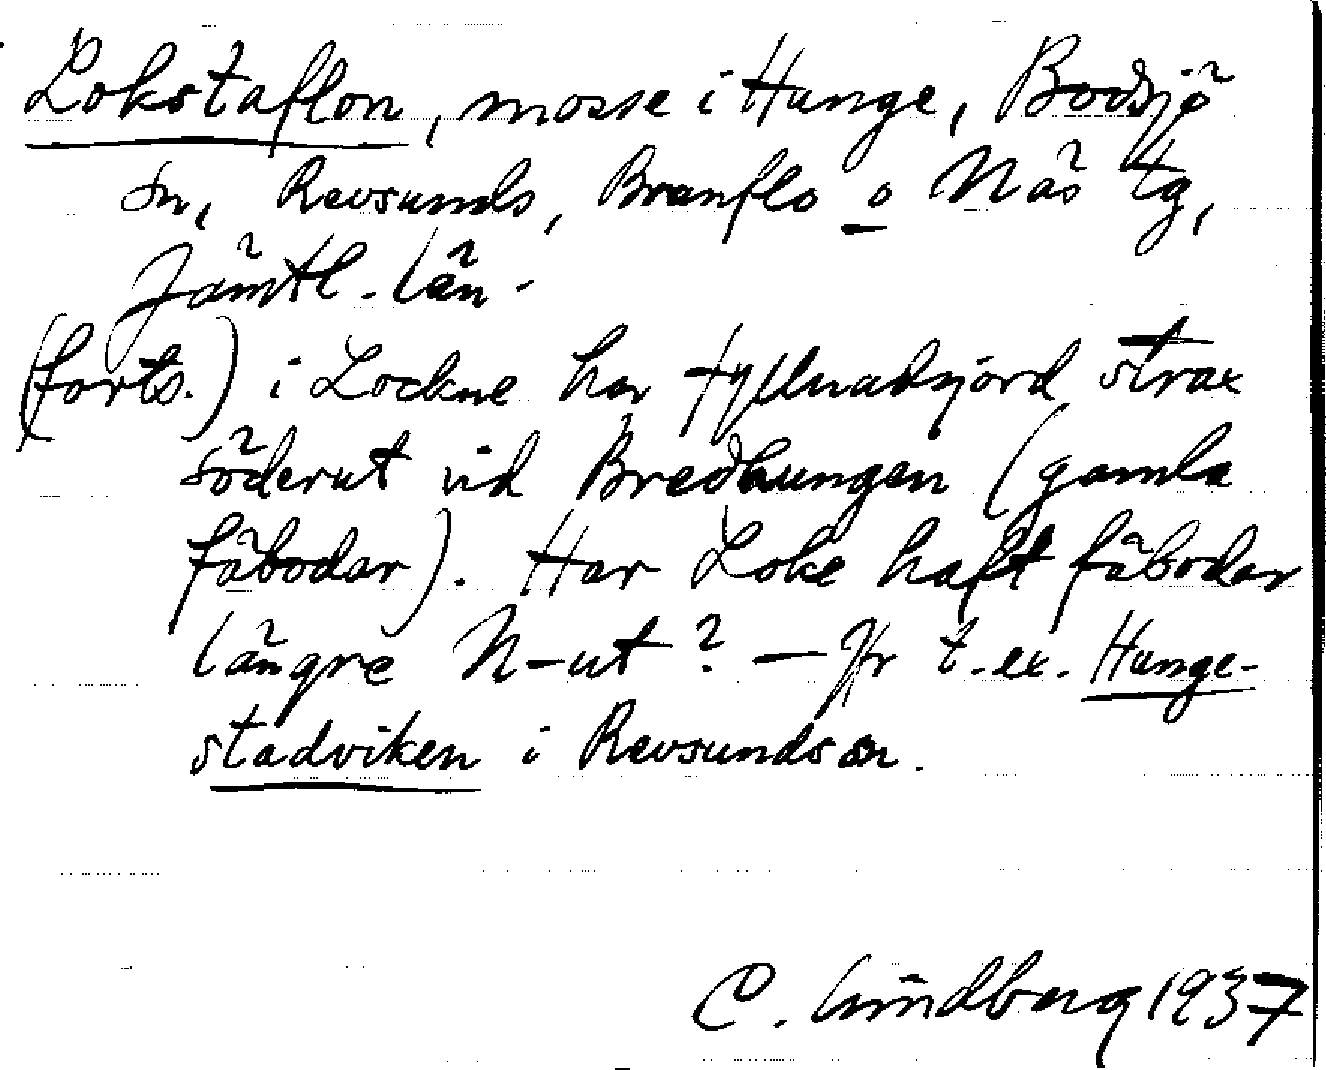 Lokstaflon, mosse i Hange, Bodsjö
sn, Revsunds, Brunflo o Näs tg,
Jämtl. län.
(forts.) i Lockne har fyllnadsjord strax
söderut vid Bredbungen (gamla
fäbodar). Har Loke haft fäbodar
längre N-ut? — Jfr t.ex. Hange-
stadviken i Revsunds sn.
C. Lindberg 1937